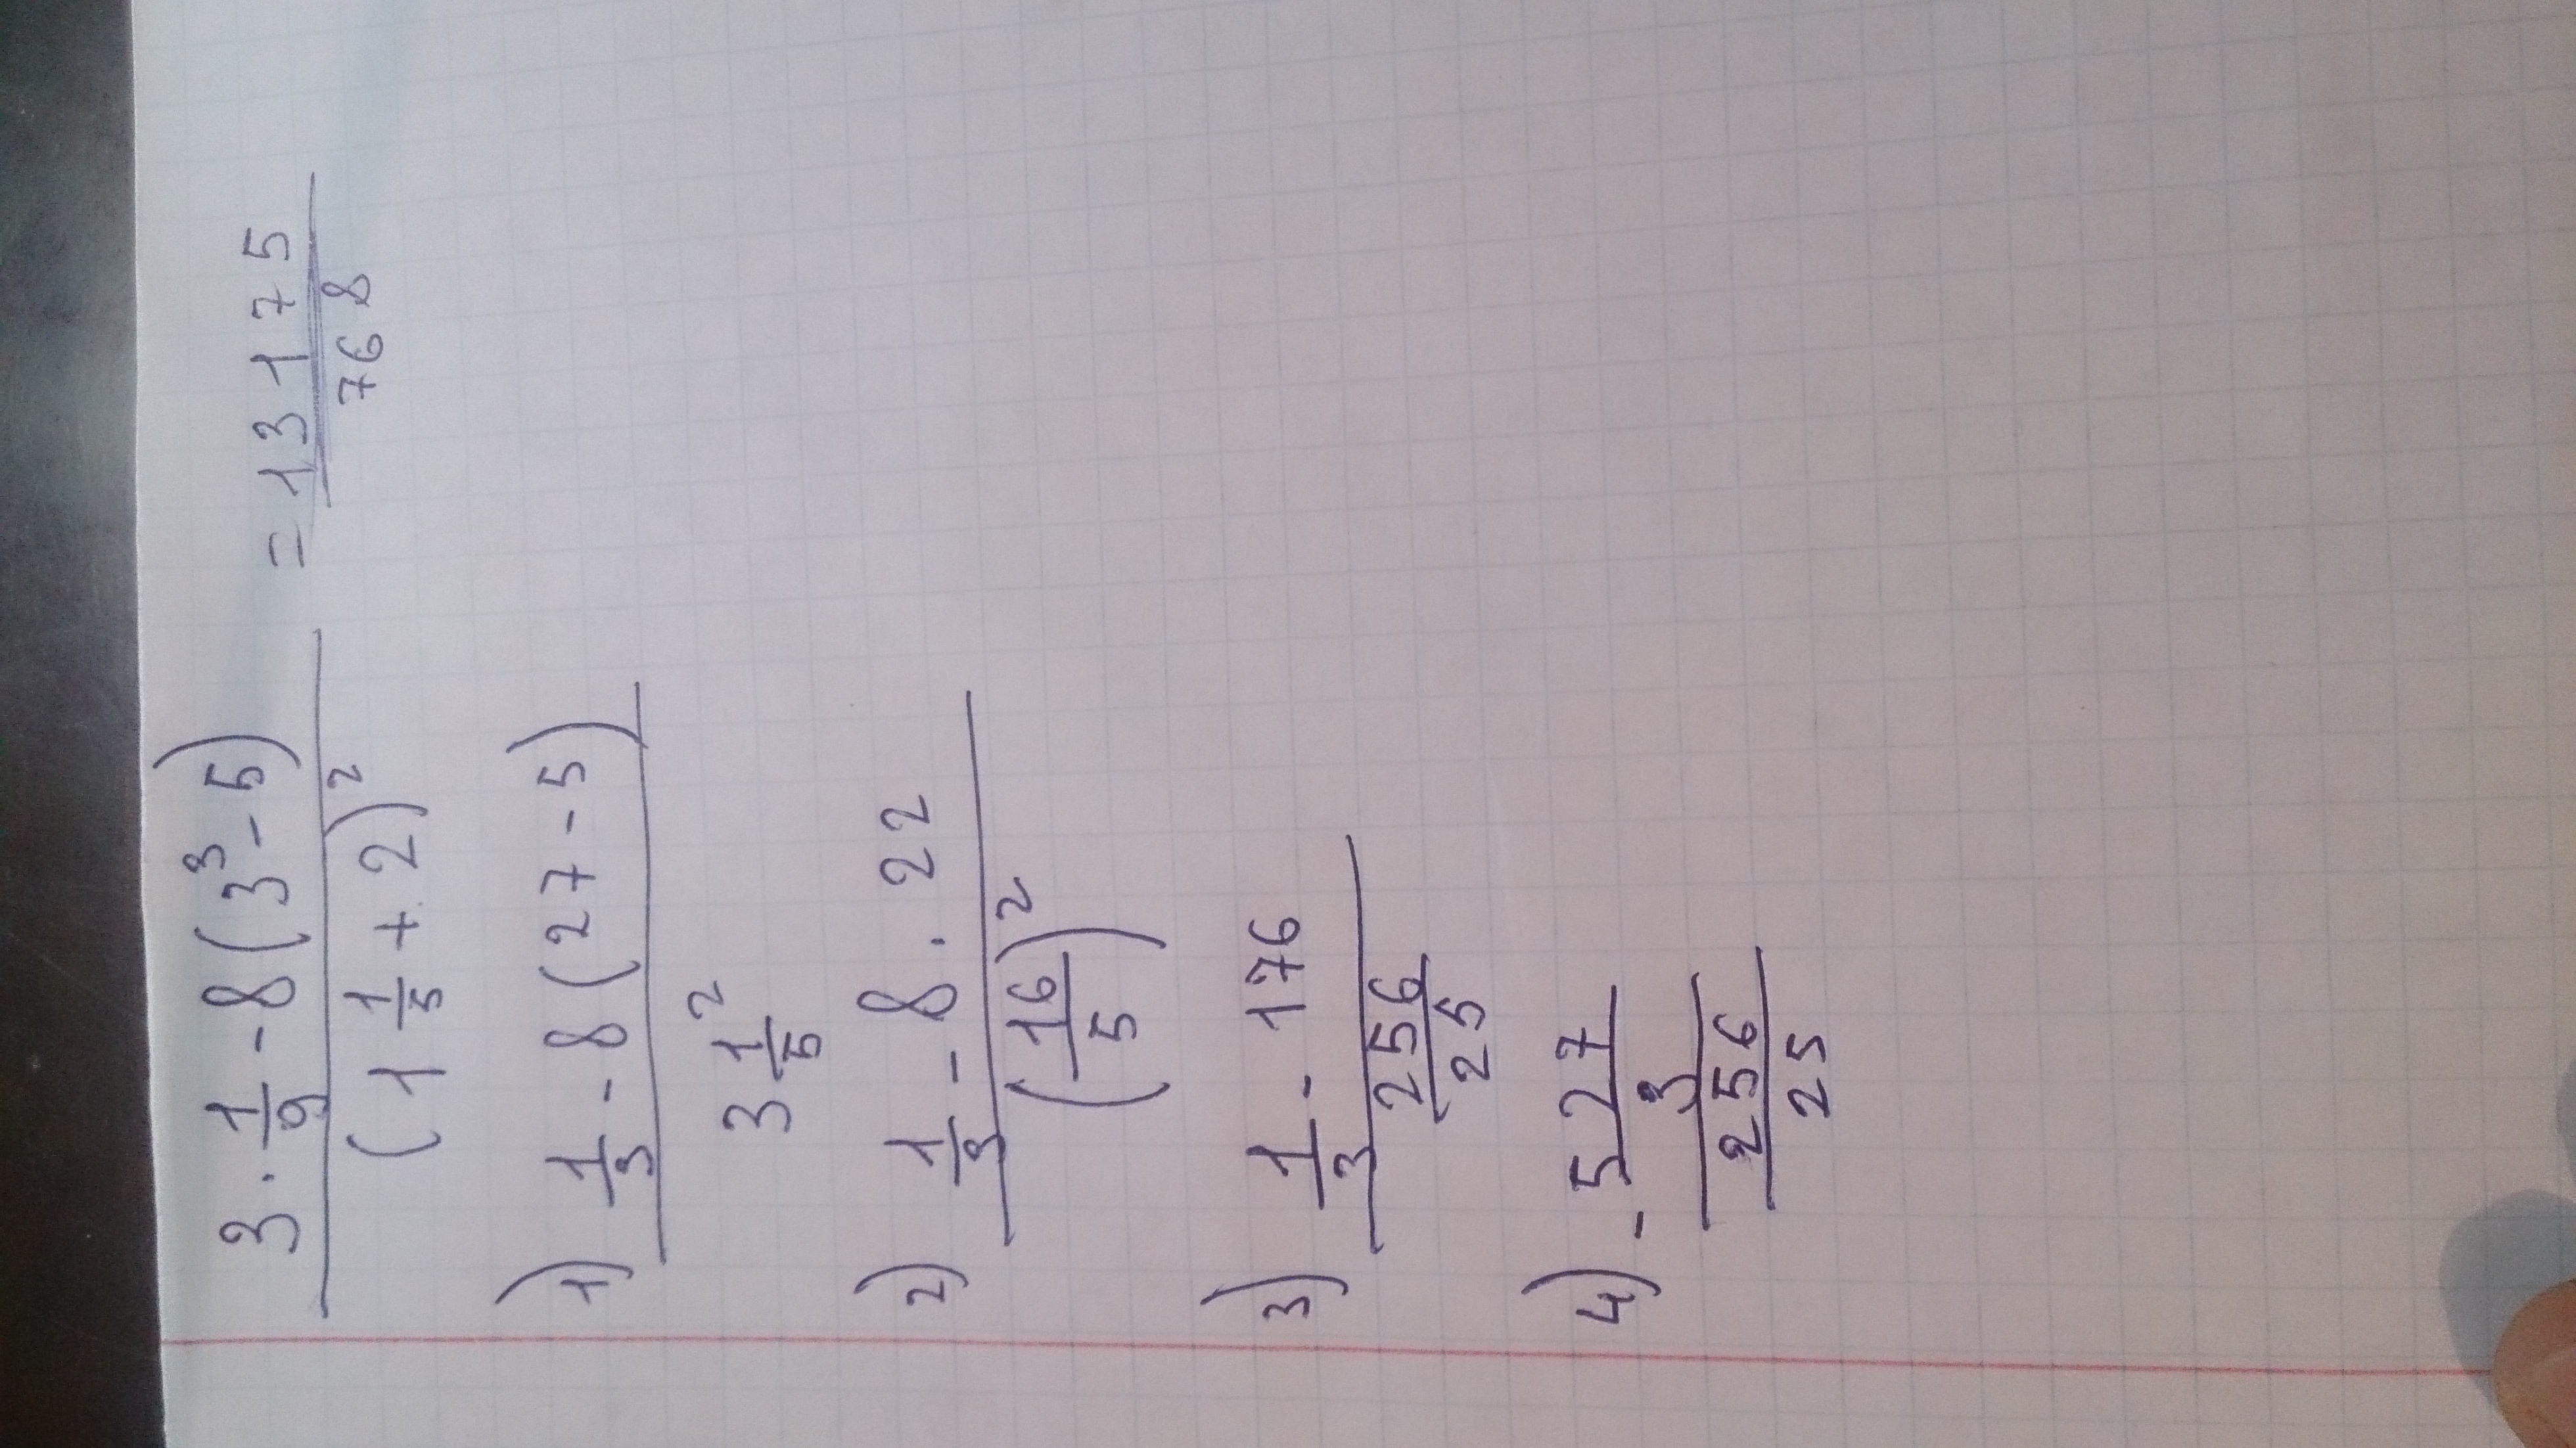 3 · 1/9 - 8(3³ - 5) = 13175
(1 1/5 + 2)² 768
1) 1/3 - 8(27 - 5)
3 1/5 ²
2) 1/3 - 8 · 22
(16/5)²
3) 1/3 - 176
256
25
4) - 527
3
256
25